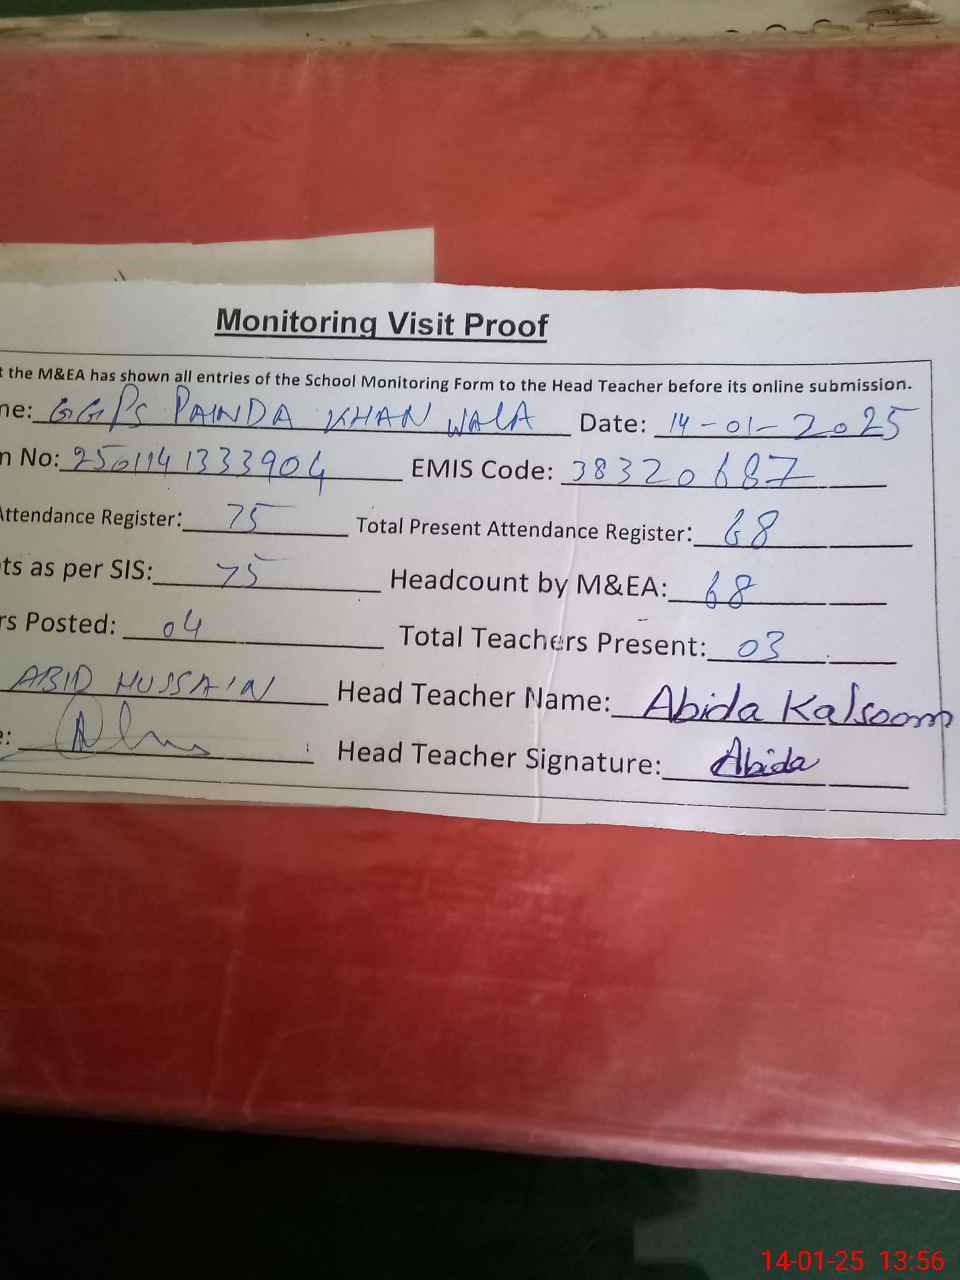 Monitoring Visit Proof
t the M&EA has shown all entries of the School Monitoring Form to the Head Teacher before its online submission.
ne: GGPS PAINDA KHAN WALA Date: 14-01-2025
n No: 2501141333904 EMIS Code: 38320687
Attendance Register: 75 Total Present Attendance Register: 68
ts as per SIS: 75 Headcount by M&EA: 68
rs Posted: 04 Total Teachers Present: 03
ABID HUSSAIN Head Teacher Name: Abida Kalsoom
e: Head Teacher Signature: Abida
14-01-25 13:56